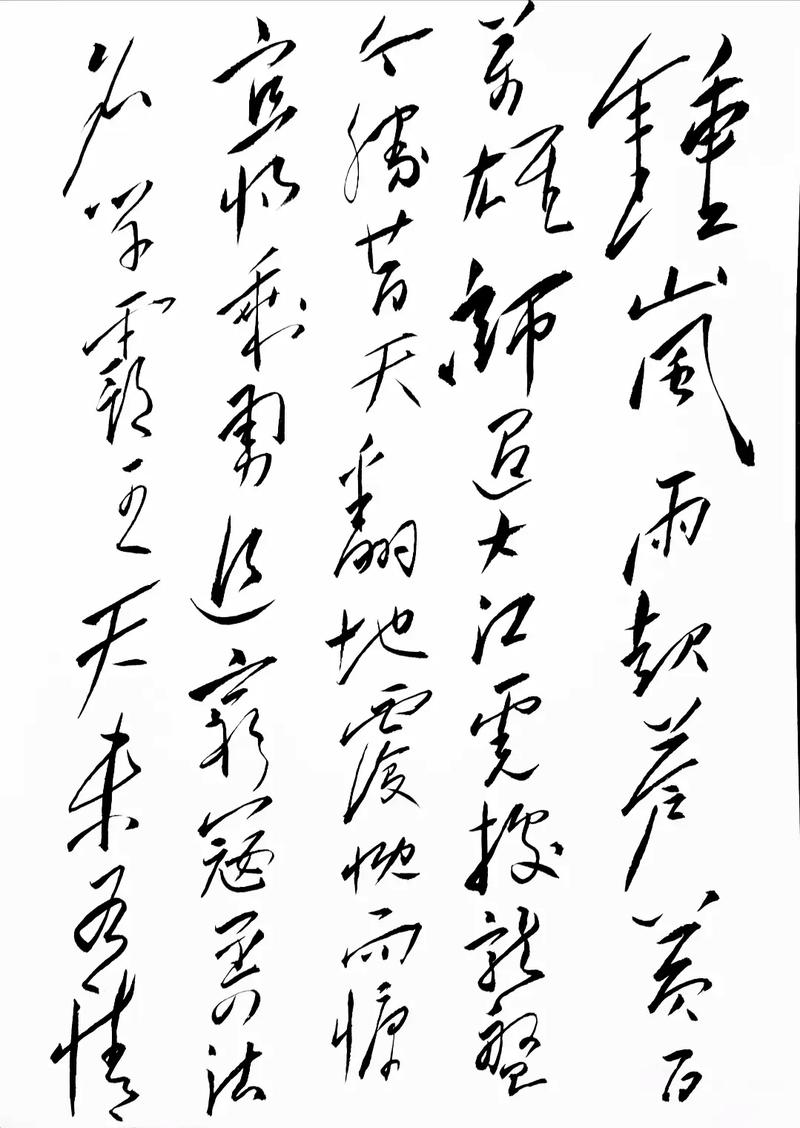 鍾山風雨起蒼黃百
萬雄師過大江虎踞龍盤
今勝昔天翻地覆慨而慷
宜将剩勇追窮寇不可沽
名学霸王天若有情